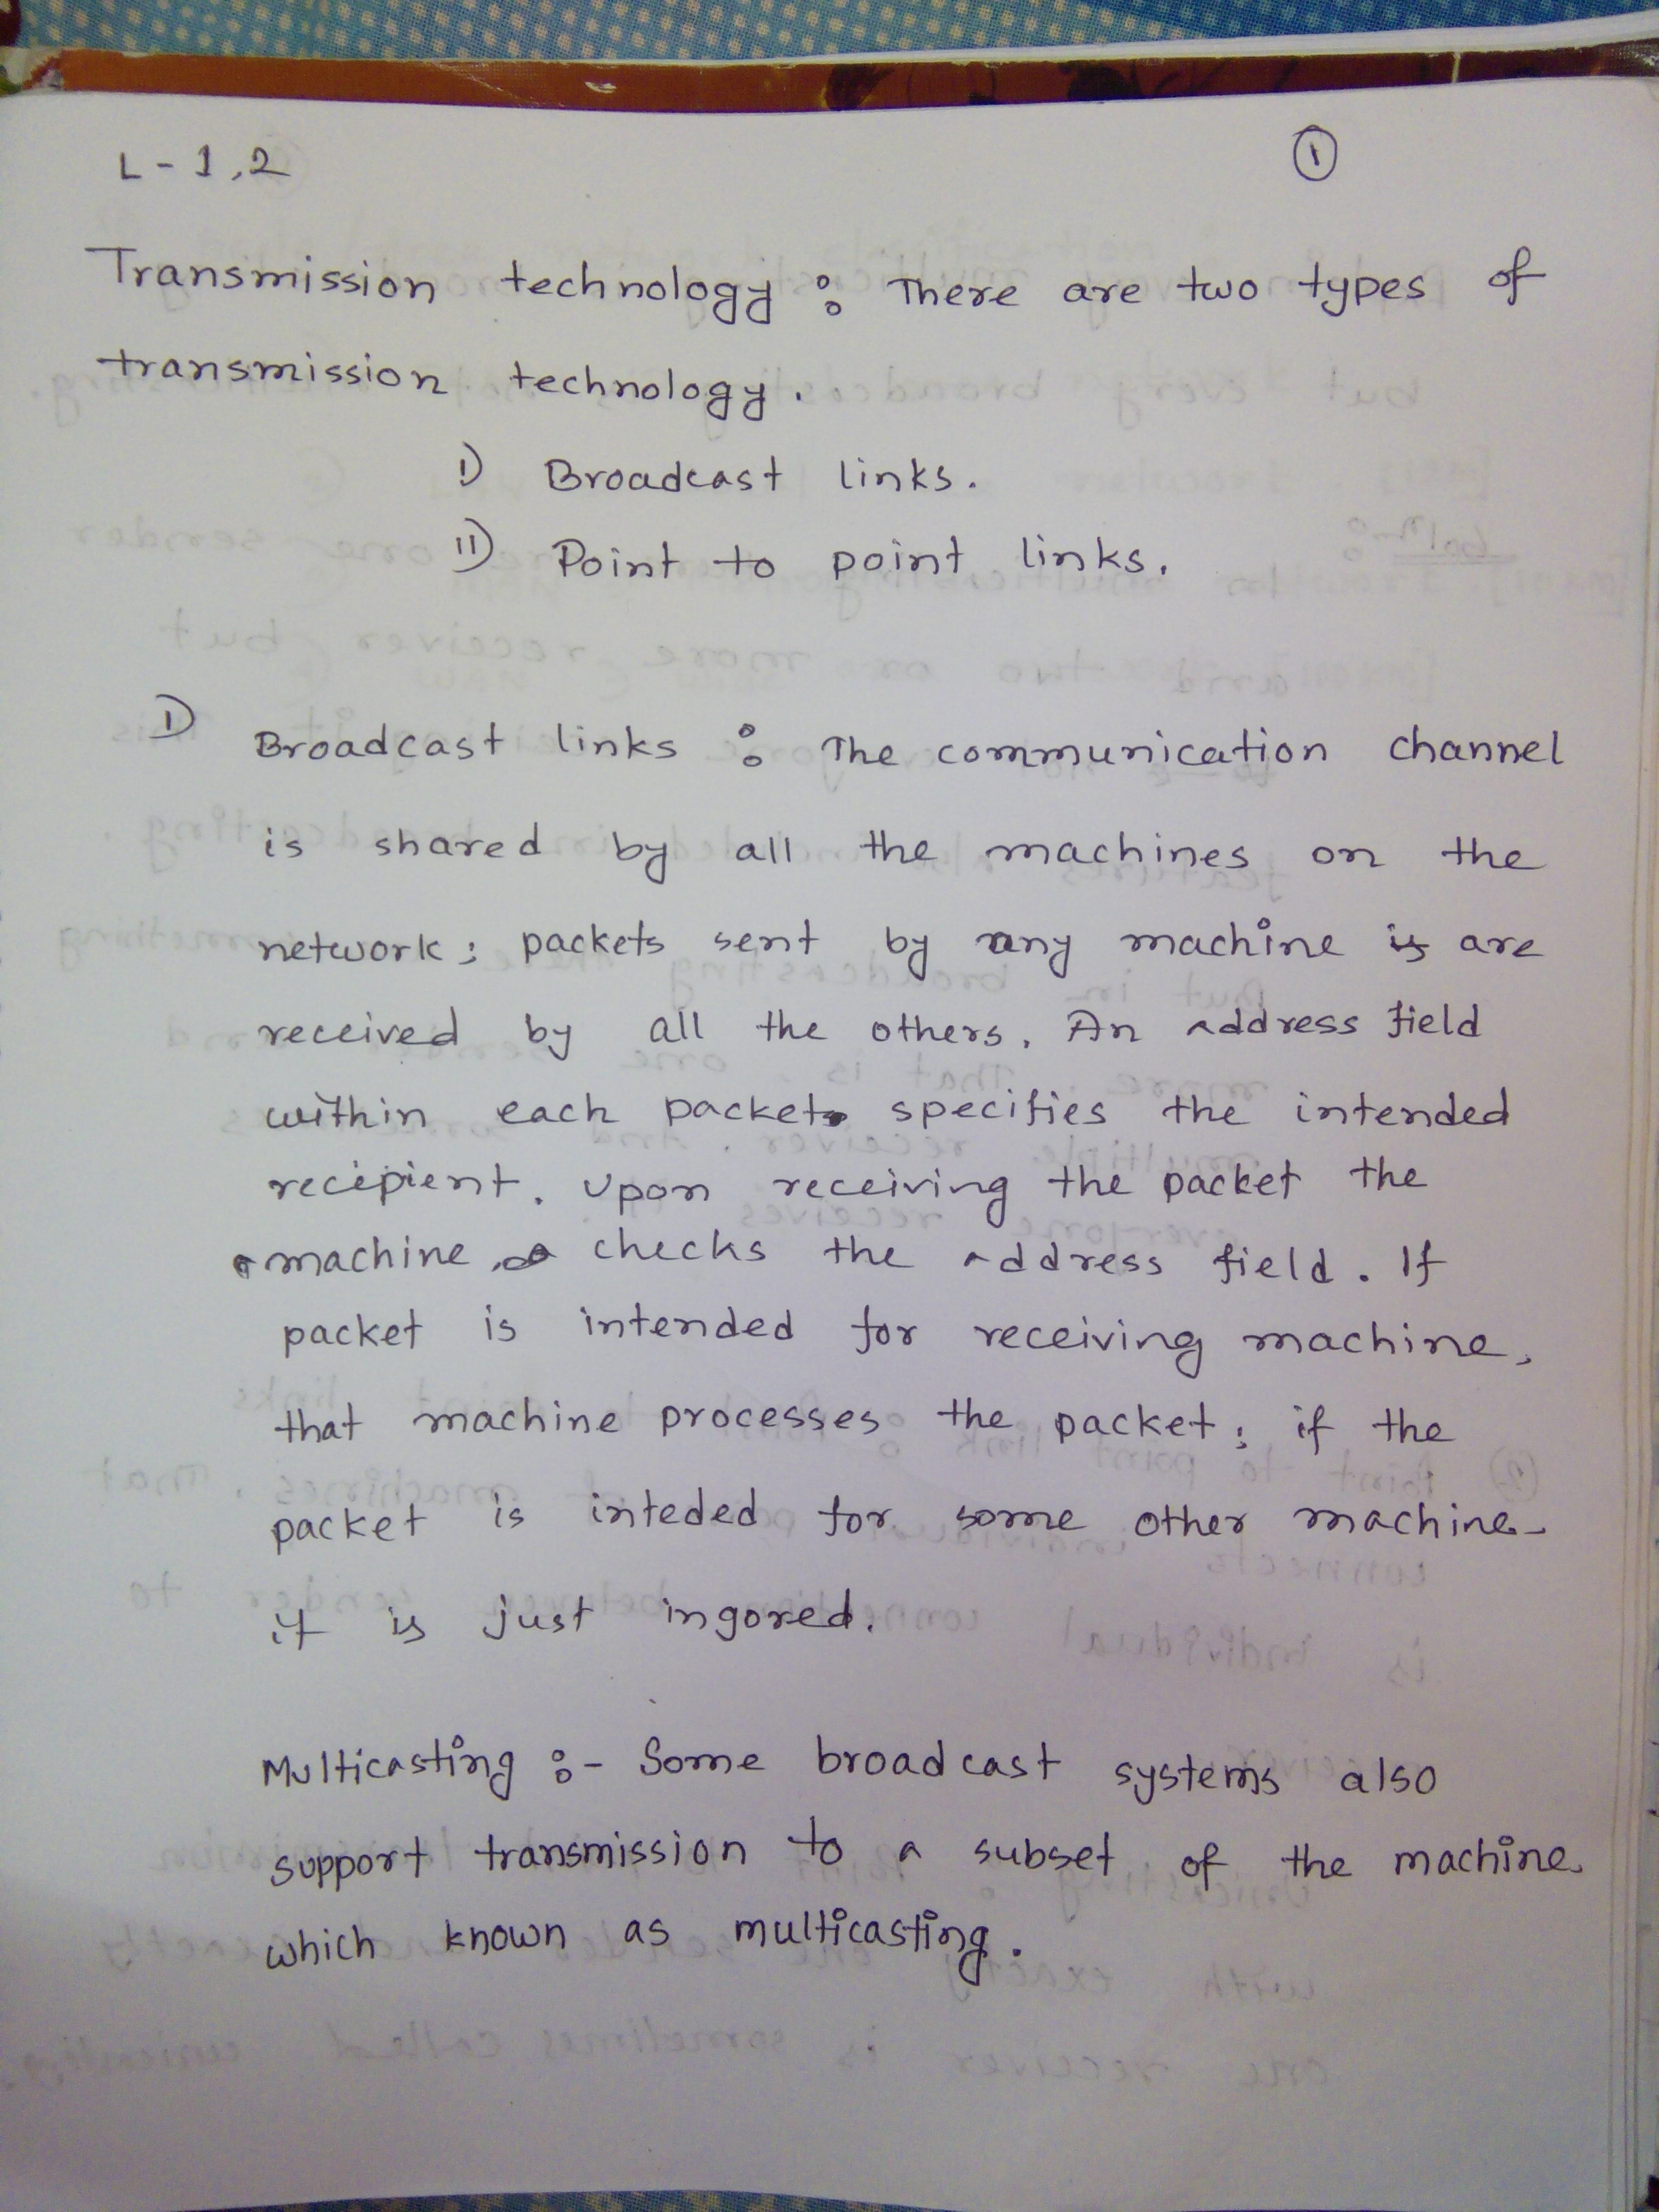 L - 1,2
1
Transmission technology : There are two types of
transmission technology.
I) Broadcast links.
II) Point to point links.
I) Broadcast links : The communication channel
is shared by all the machines on the
network; packets sent by any machine is are
received by all the others. An address field
within each packet specifies the intended
recipient. Upon receiving the packet the
machine checks the address field. If
packet is intended for receiving machine,
that machine processes the packet; if the
packet is inteded for some other machine
it is just ingored.
Multicasting :- Some broadcast systems also
support transmission to a subset of the machine
which known as multicasting.